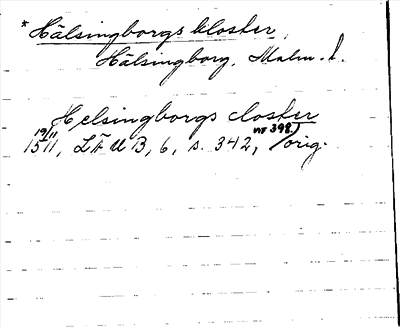 *Hälsingborgs kloster,
Hälsingborg, Malm. l.
Helsingborgs closter
19/11 1511, LÄUB, 6, s. 342, nr 398) orig.